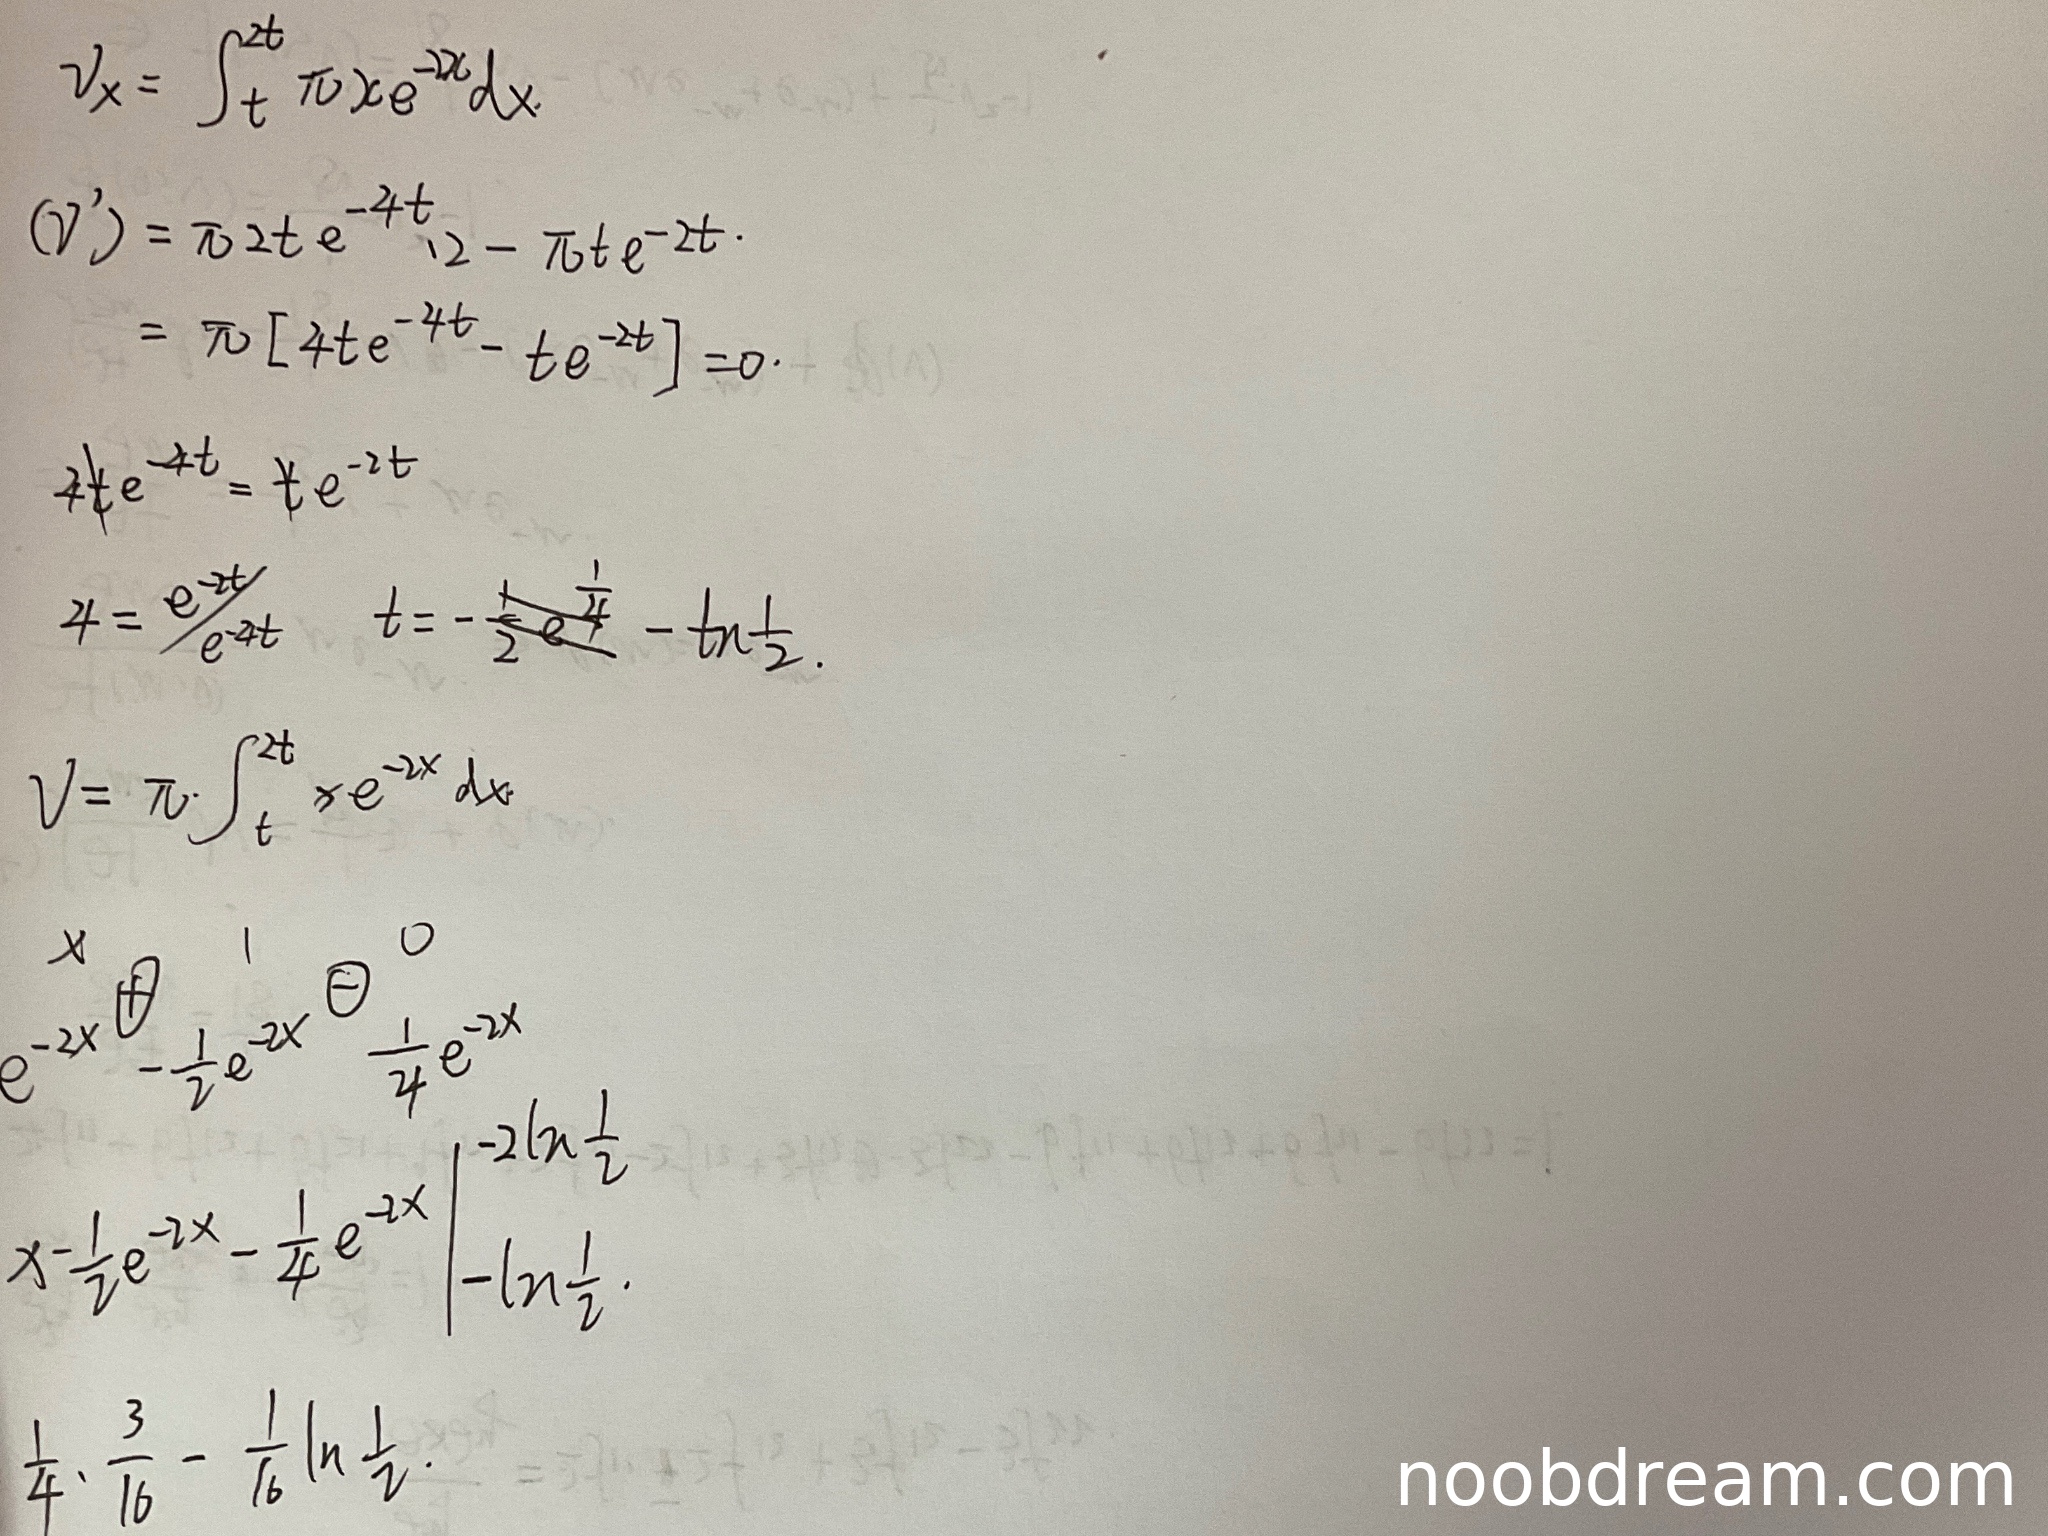 Vx = ∫_t^{2t} πxe^{-2x}dx.
(V') = π2te^{-4t}·2 - πte^{-2t}.
= π[4te^{-4t} - te^{-2t}] = 0.
4te^{-4t} = te^{-2t}
4 = e^{-2t}/e^{-4t}  t = - 1/2 e^{1/4} - ln 1/2.
V = π·∫_t^{2t} xe^{-2x}dx.
x 1 0
⊕ ⊖
e^{-2x} -1/2 e^{-2x} 1/4 e^{-2x}
x -1/2 e^{-2x} - 1/4 e^{-2x} |_{-ln 1/2.}^{-2ln 1/2}
1/4 · 3/16 - 1/16 ln 1/2.
noobdream.com